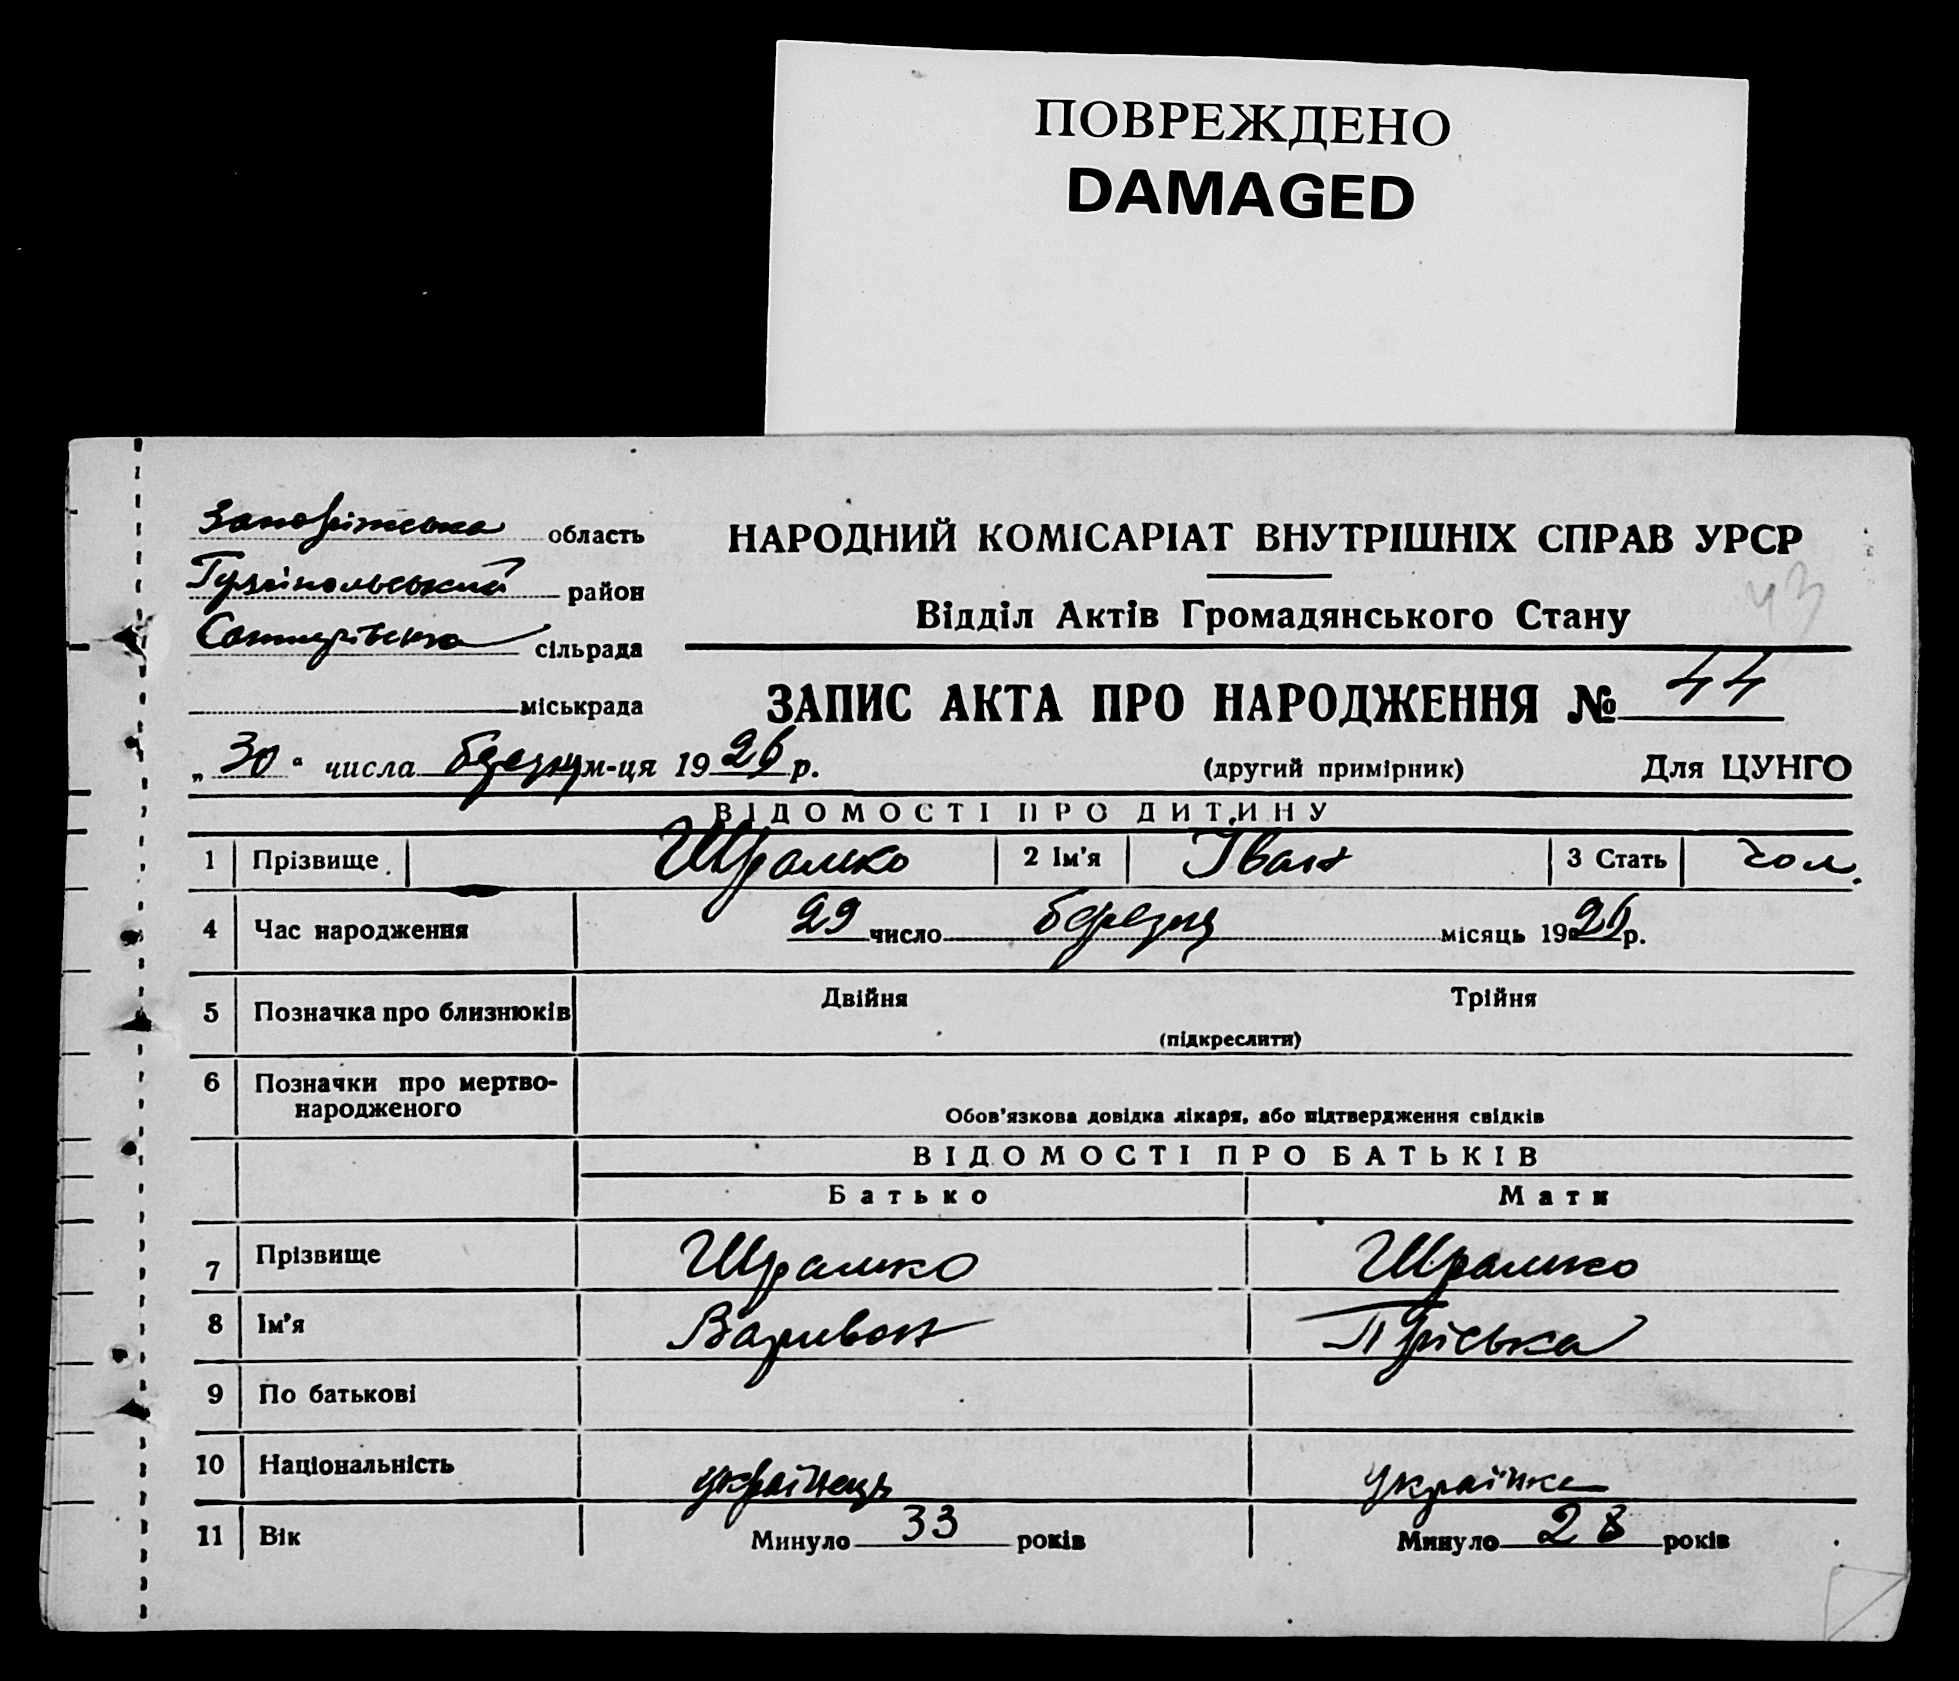 ПОВРЕЖДЕНО
DAMAGED
Запоріжська область
НАРОДНИЙ КОМІСАРІАТ ВНУТРІШНІХ СПРАВ УРСР
Гуляйпольський район
43
Відділ Актів Громадянського Стану
сільрада
міськрада
ЗАПИС АКТА ПРО НАРОДЖЕННЯ № 44
„30“ числа березня м-ця 1926 р.
(другий примірник) Для ЦУНГО
ВІДОМОСТІ ПРО ДИТИНУ
1 Прізвище Шрамко 2 Ім'я Іван 3 Стать чол.
4 Час народження 29 число березня місяць 1926 р.
5 Позначка про близнюків Двійня Трійня
(підкреслити)
6 Позначки про мертво-
народженого
Обов'язкова довідка лікаря, або підтвердження свідків
ВІДОМОСТІ ПРО БАТЬКІВ
Батько Мати
7 Прізвище Шрамко Шрамко
8 Ім'я Варивон Пріська
9 По батькові
10 Національність українець українка
11 Вік Минуло 33 років Минуло 28 років